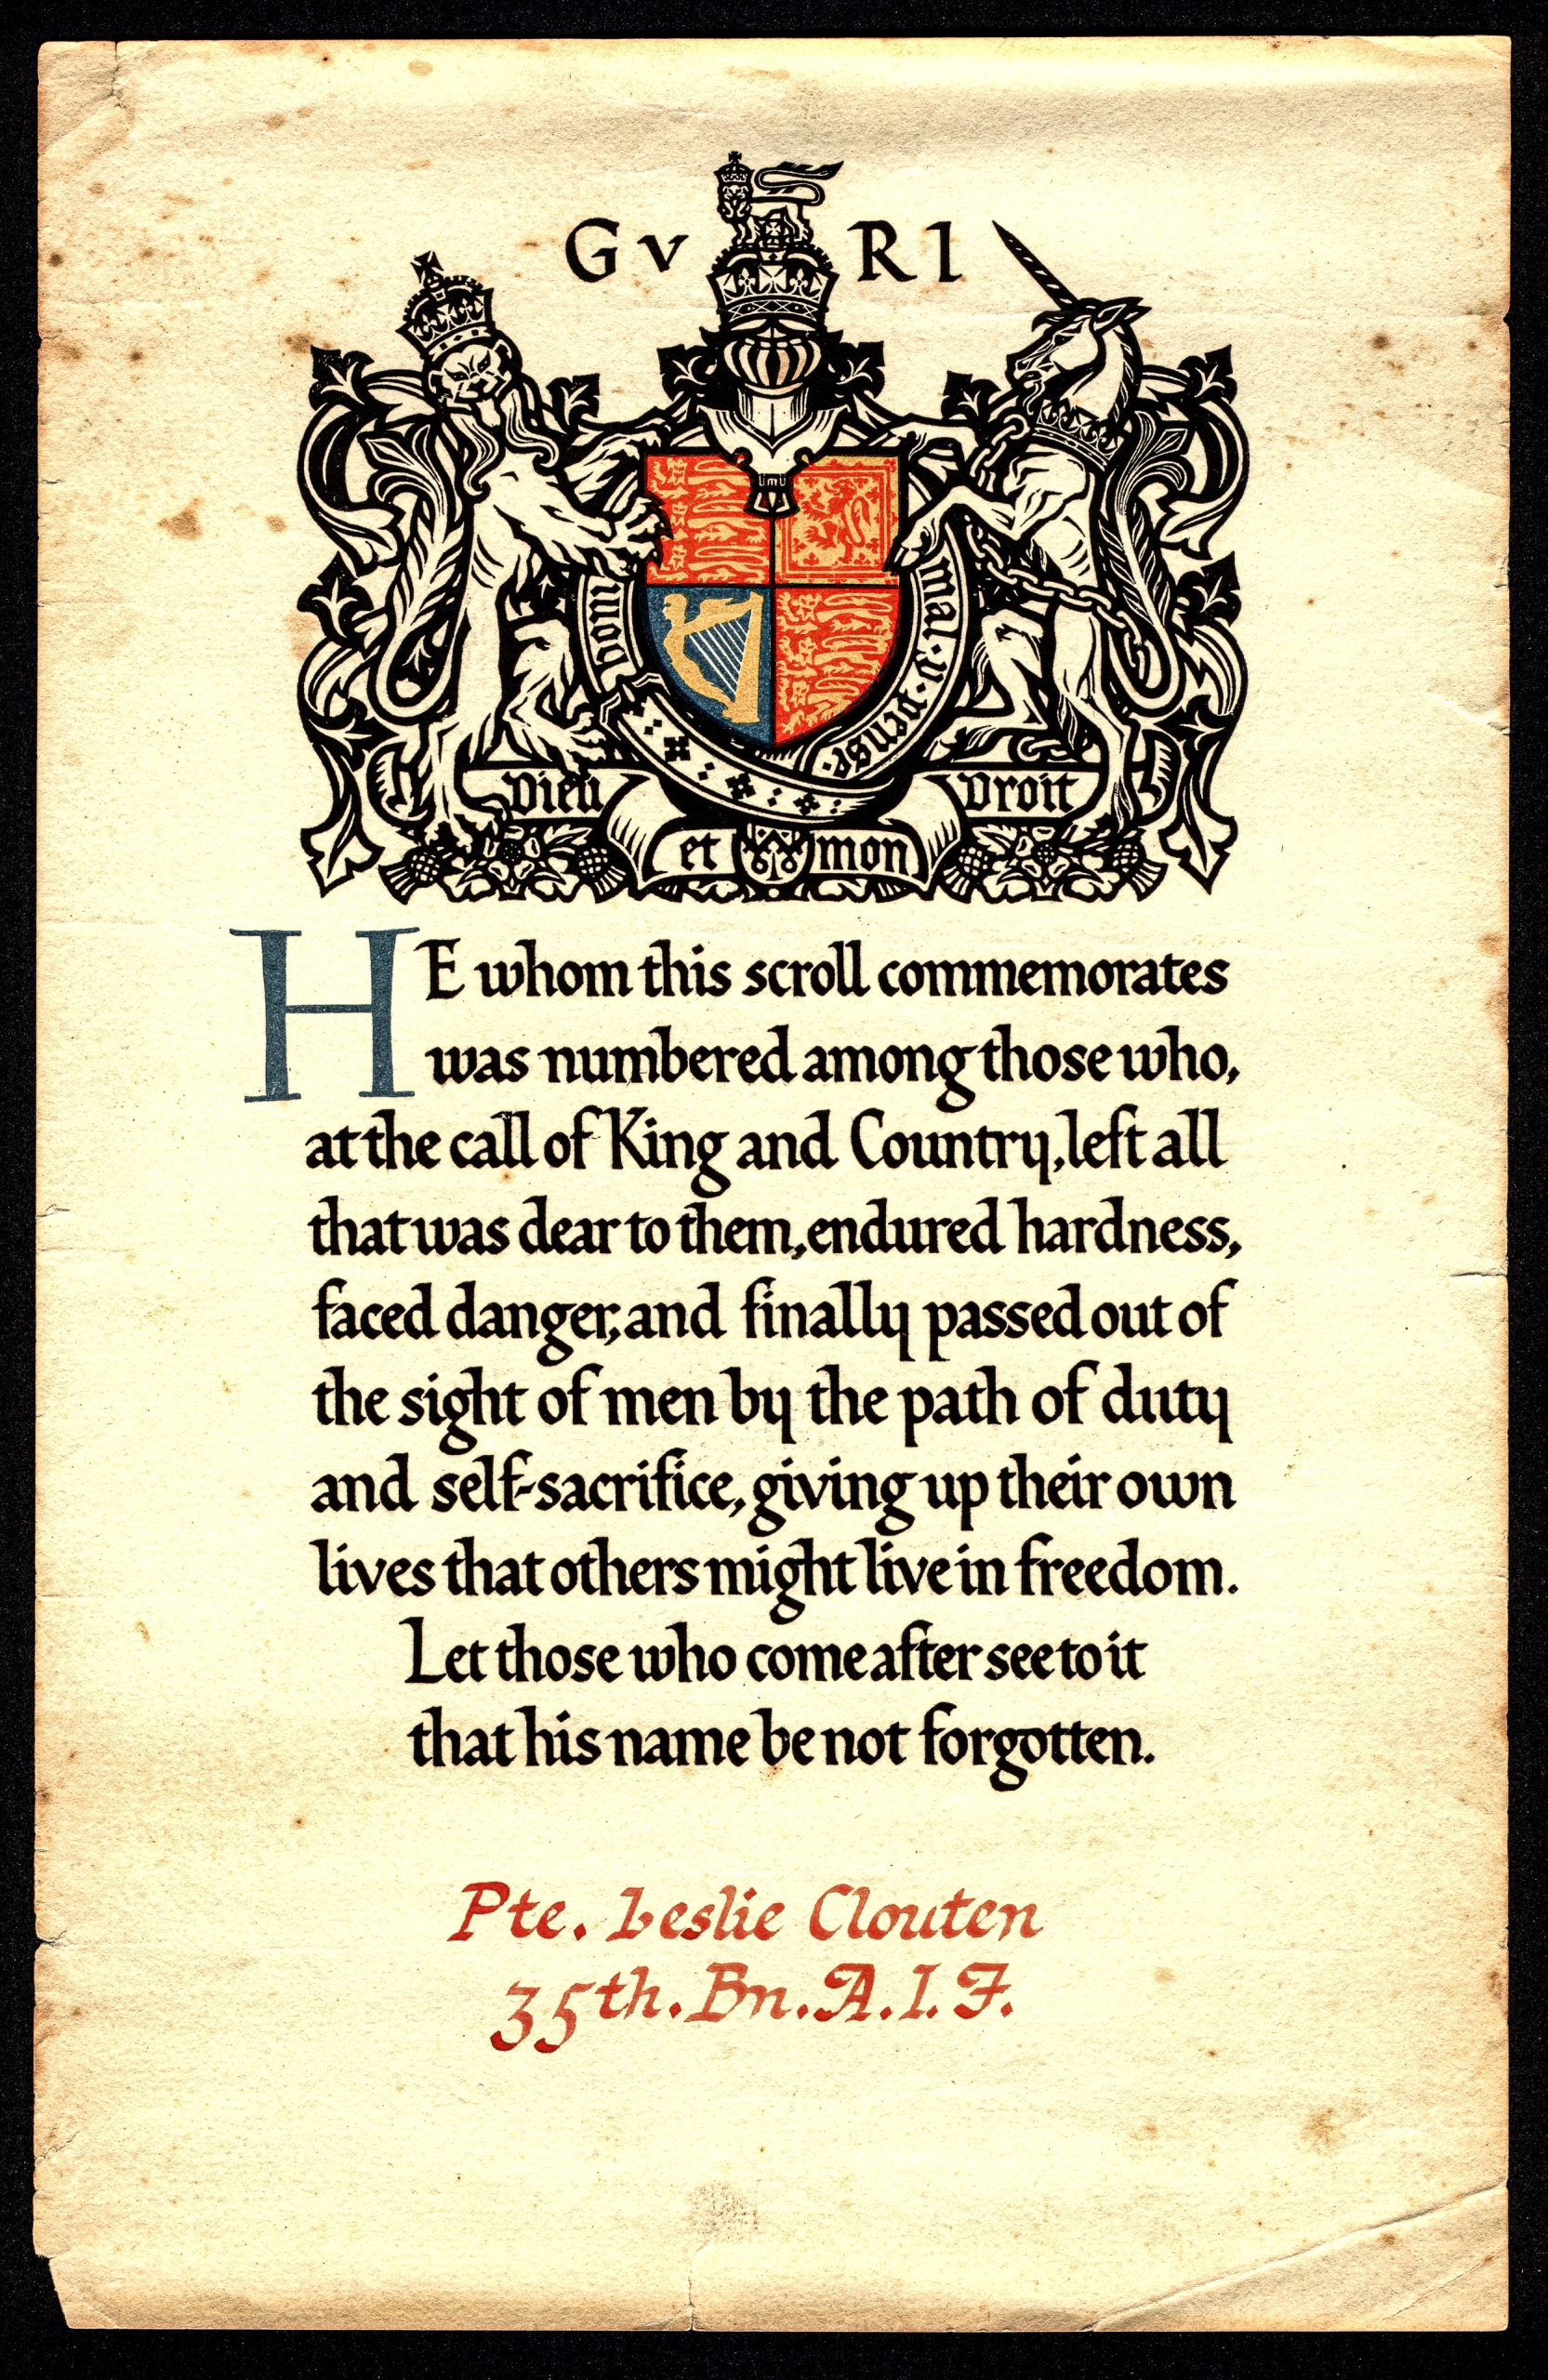 GV RI
honi
mal·y·pense·
Dieu et mon Droit
HE whom this scroll commemorates
was numbered among those who,
at the call of King and Country, left all
that was dear to them, endured hardness,
faced danger, and finally passed out of
the sight of men by the path of duty
and self-sacrifice, giving up their own
lives that others might live in freedom.
Let those who come after see to it
that his name be not forgotten.
Pte. Leslie Clouten
35th. Bn. A. I. F.